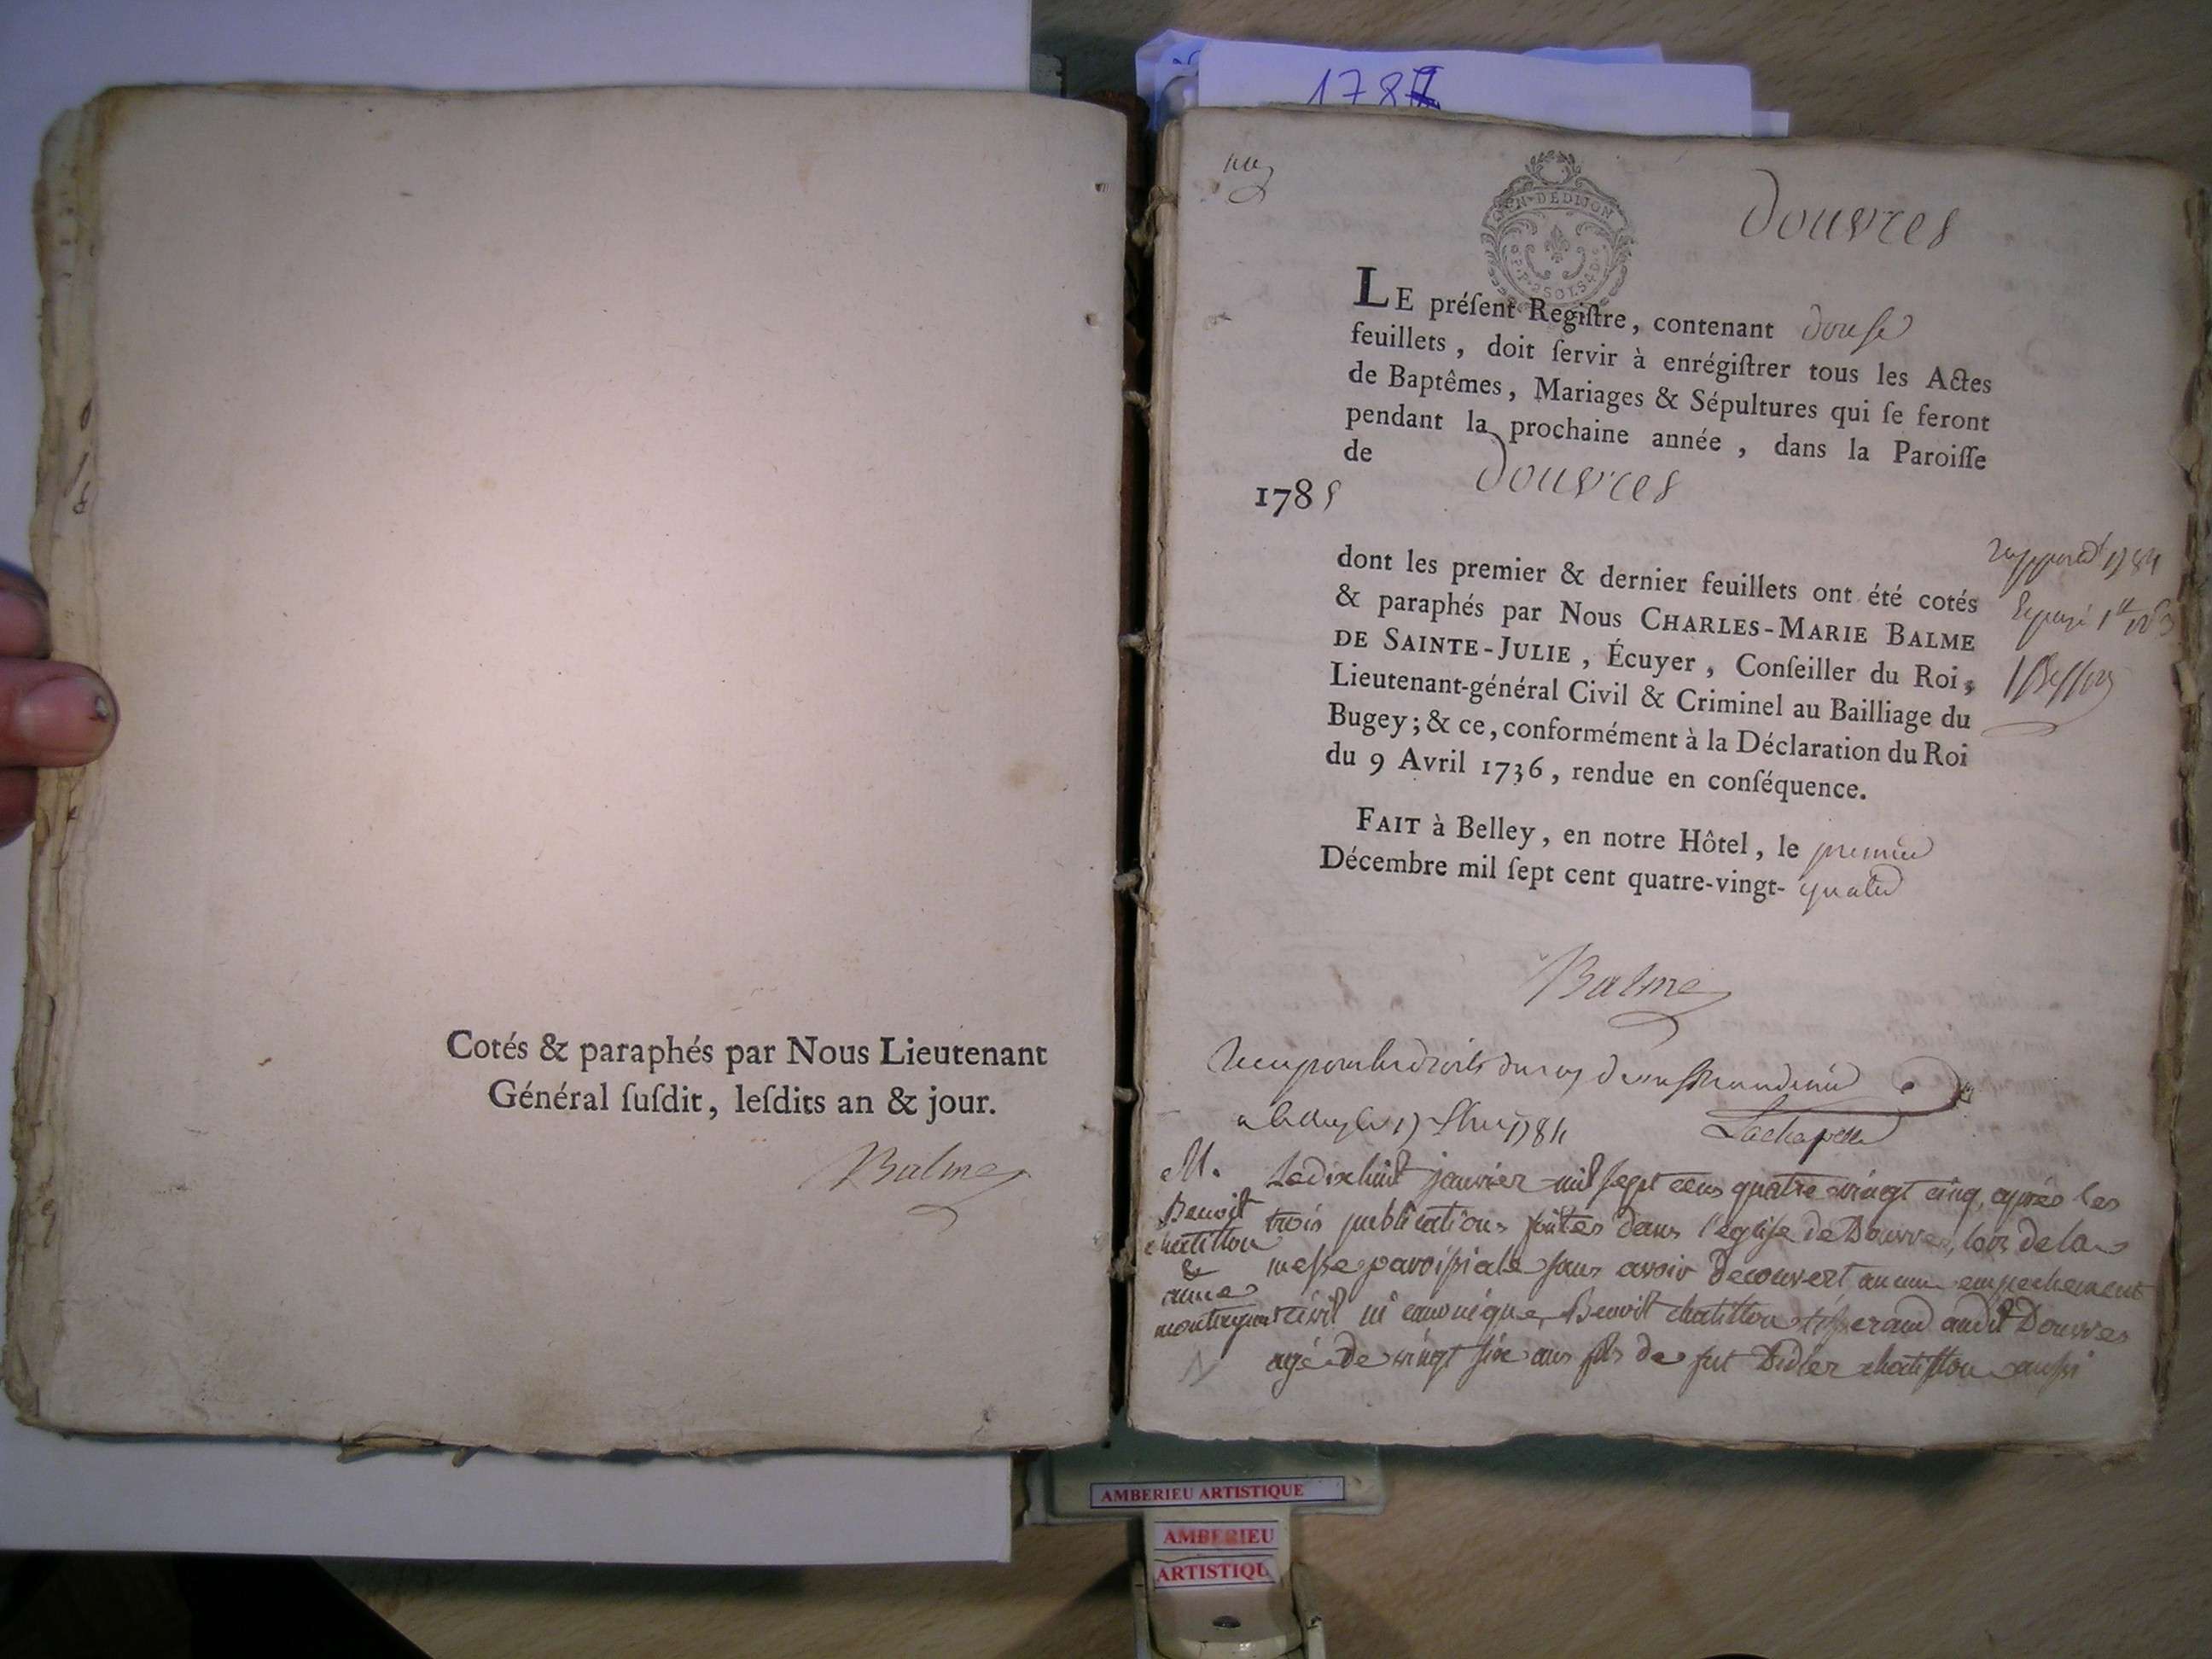 Cotés & paraphés par Nous Lieutenant
Général ſuſdit, leſdits an & jour.
Balme
178
GEN. DE DIJON
douvres
LE préſent Regiſtre, contenant douse
feuillets, doit ſervir à enrégiſtrer tous les Actes
de Baptêmes, Mariages & Sépultures qui ſe feront
pendant la prochaine année, dans la Paroiſſe
de douvres
1785
dont les premier & dernier feuillets ont été cotés
& paraphés par Nous CHARLES-MARIE BALME
DE SAINTE-JULIE, Écuyer, Conſeiller du Roi,
Lieutenant-général Civil & Criminel au Bailliage du
Bugey; & ce, conformément à la Déclaration du Roi
du 9 Avril 1736, rendue en conſéquence.
FAIT à Belley, en notre Hôtel, le premier
Décembre mil ſept cent quatre-vingt-quatre
Balme
1784
Lachapelle
M.
Benoit
chatillon
&
anne
Le dixhuit janvier mil sept cens quatre vingt cinq, après les
trois publications faites dans l'eglise de Douvres, lors de la
messe paroissiale sans avoir decouvert aucun empechement
civil ni canonique, Benoit chatillon tisserand audit Douvres
agé de vingt six ans fils de fut Didier chatillon aussi
AMBERIEU ARTISTIQUE
AMBERIEU
ARTISTIQU